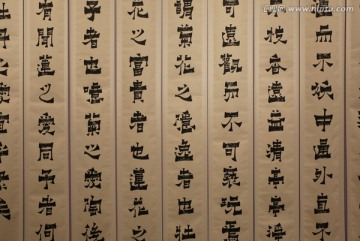 而不妖中通外直不
枝香遠益清亭亭淨
可遠觀而不可褻玩焉
謂菊花之隱逸者也牡
花之富貴者也蓮花之
子者也噫菊之愛陶後
有聞蓮之愛同予者何
牡丹之愛宜乎眾矣